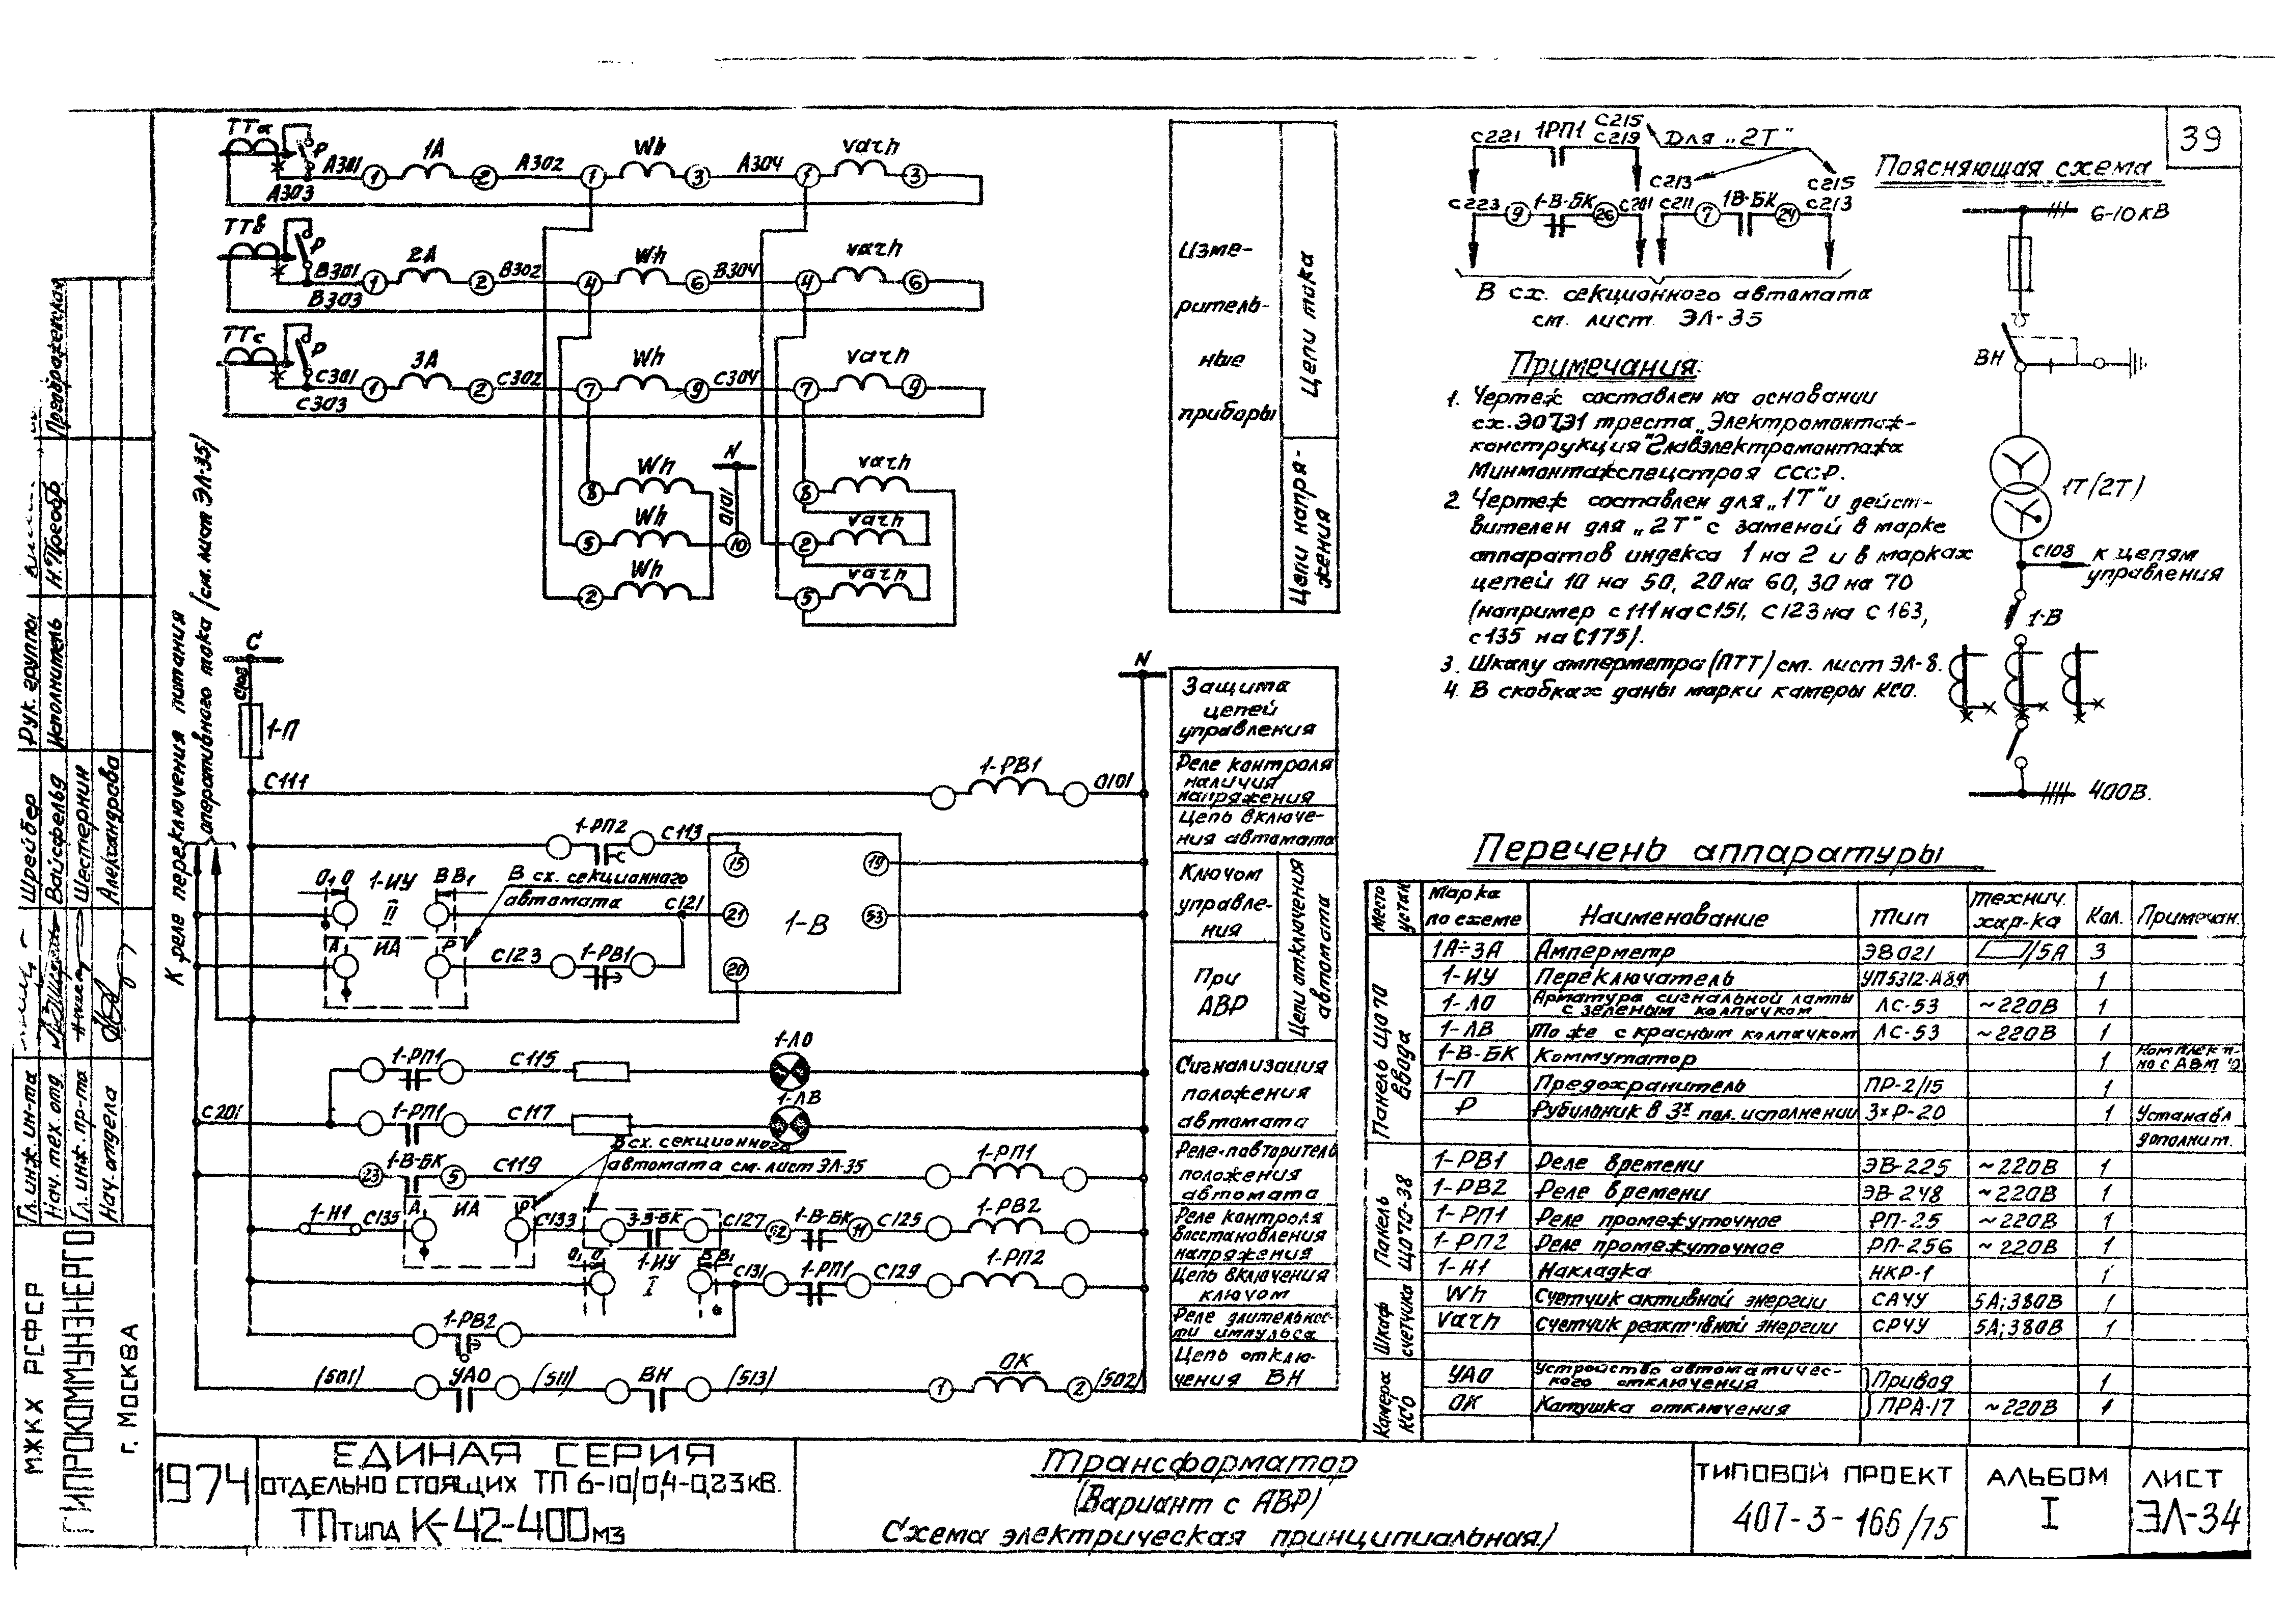 39
ТТа
Р
А301
1А
А302
Wh
А304
varh
А303
1
2
1
3
1
3
ТТв
Р
В301
2А
В302
Wh
В304
varh
В303
1
2
4
6
4
6
ТТс
Р
С301
3А
С302
Wh
С304
varh
С303
1
2
7
9
7
9
N
0101
8
Wh
5
Wh
10
2
Wh
8
varh
2
varh
5
varh
Измерительные приборы
Цепи тока
Цепи напряжения
С221
1РП1
С215
С219
Для „2Т"
С213
С215
С223
9
1-В-БК
26
С201
С211
7
1В-БК
24
С213
В сх. секционного автомата
см. лист ЭЛ-35
Поясняющая схема
6-10кВ
ВН
1Т(2Т)
С103
к цепям
управления
1-В
400В.
Примечания:
1. Чертеж составлен на основании
треста „Электромонтаж-
конструкция" Главэлектромонтажа
Минмонтажспецстроя СССР.
2. Чертеж составлен для „1Т" и дейст-
вителен для „2Т" с заменой в марке
аппаратов индекса 1 на 2 и в марках
цепей 10 на 50, 20 на 60, 30 на 70
(например С111 на С151, С123 на С163,
С135 на С175).
3. Шкалу амперметра (ПТТ) см. лист ЭЛ-8.
4. В скобках даны марки камеры КСО.
К реле переключения питания
оперативного тока (см. лист ЭЛ-35)
С
С103
1-П
N
С111
1-РВ1
0101
1-РП2
С113
15
19
О1 О
1-ИУ
В В1
II
В сх. секционного
автомата
С121
21
1-В
53
А
ИА
Р
С123
1-РВ1
20
1-РП1
С115
1-ЛО
С201
1-РП1
С117
1-ЛВ
В сх. секционного
автомата см. лист ЭЛ-35
23
1-В-БК
5
С119
1-РП1
1-Н1
С135
А
ИА
Р
С133
3-В-БК
С127
12
1-В-БК
11
С125
1-РВ2
О1 О
1-ИУ
В В1
I
С131
1-РП1
С129
1-РП2
1-РВ2
(501)
УАО
(511)
ВН
(513)
1
ОК
2
(502)
Защита
цепей
управления
Реле контроля
наличия
напряжения
Цепь включе-
ния автомата
Ключом
управле-
ния
При
АВР
Цепи отключения
автомата
Сигнализация
положения
автомата
Реле-повторитель
положения
автомата
Реле контроля
восстановления
напряжения
Цепь включения
ключом
Реле длительнос-
ти импульса
Цепь отклю-
чения ВН
Перечень аппаратуры
Место устан. Марка по схеме Наименование Тип Технич. хар-ка Кол. Примечан.
Панель ЩО70 ввода
1А÷3А Амперметр ЭВ021 /5А 3
1-ИУ Переключатель 1
1-ЛО Арматура сигнальной лампы с зеленым колпачком ЛС-53 ~220В 1
1-ЛВ То же с красным колпачком ЛС-53 ~220В 1
1-В-БК Коммутатор 1
1-П Предохранитель ПР-2/15 1
Р Рубильник в 3х пол. исполнении 3хР-20 1 Устанавл. дополнит.
Панель ЩО70-38
1-РВ1 Реле времени ЭВ-225 ~220В 1
1-РВ2 Реле времени ЭВ-248 ~220В 1
1-РП1 Реле промежуточное РП-25 ~220В 1
1-РП2 Реле промежуточное РП-256 ~220В 1
1-Н1 Накладка НКР-1 1
Шкаф счетчика
Wh Счетчик активной энергии САЧУ 5А; 380В 1
varh Счетчик реактивной энергии СРЧУ 5А; 380В 1
Камера КСО
УАО Устройство автоматичес-кого отключения Привод 1
ОК Катушка отключения ПРА-17 ~220В 1
Гл. инж. ин-та Шрейбер Рук. группы Преображенская
Нач. тех. отд. Вайсфельд Исполнитель Н. Преобр
Гл. инж. пр-та Шестернин
Нач. отдела Александрова
МЖКХ РСФСР
ГИПРОКОММУНЭНЕРГО
г. Москва
1974
ЕДИНАЯ СЕРИЯ
ОТДЕЛЬНО СТОЯЩИХ ТП 6-10/0,4-0,23кВ.
ТП типа К-42-400 м3
Трансформатор
(Вариант с АВР)
Схема электрическая принципиальная.)
ТИПОВОЙ ПРОЕКТ
407-3-166/75
АЛЬБОМ
I
ЛИСТ
ЭЛ-34